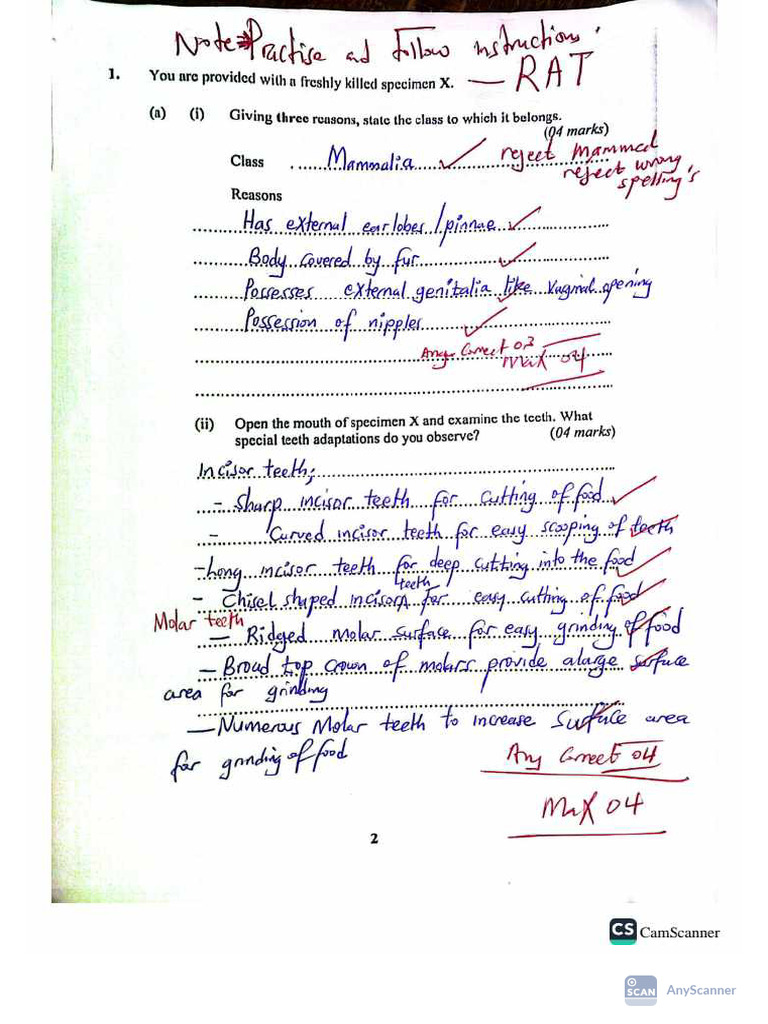 Note:- Practise and Follow instructions.
1. You are provided with a freshly killed specimen X. — RAT
(a) (i) Giving three reasons, state the class to which it belongs.
(04 marks)
Class Mammalia reject Mammal
reject wrong
spelling's
Reasons
Has external earlobes/pinnae
Body covered by fur
Possesses external genitalia like vaginal opening
Possession of nipples
Any Correct 03
Max 04
(ii) Open the mouth of specimen X and examine the teeth. What
special teeth adaptations do you observe? (04 marks)
Incisor teeth;
- Sharp incisor teeth for cutting of food
- Curved incisor teeth for easy scooping of teeth
- Long incisor teeth for deep cutting into the food
- Chisel shaped incisors teeth for easy cutting of food
Molar teeth
- Ridged molar surface for easy grinding of food
- Broad top crown of molars provide a large surface
area for grinding
- Numerous Molar teeth to increase surface area
for grinding of food
Any Correct 04
Max 04
2
CS CamScanner
SCAN AnyScanner